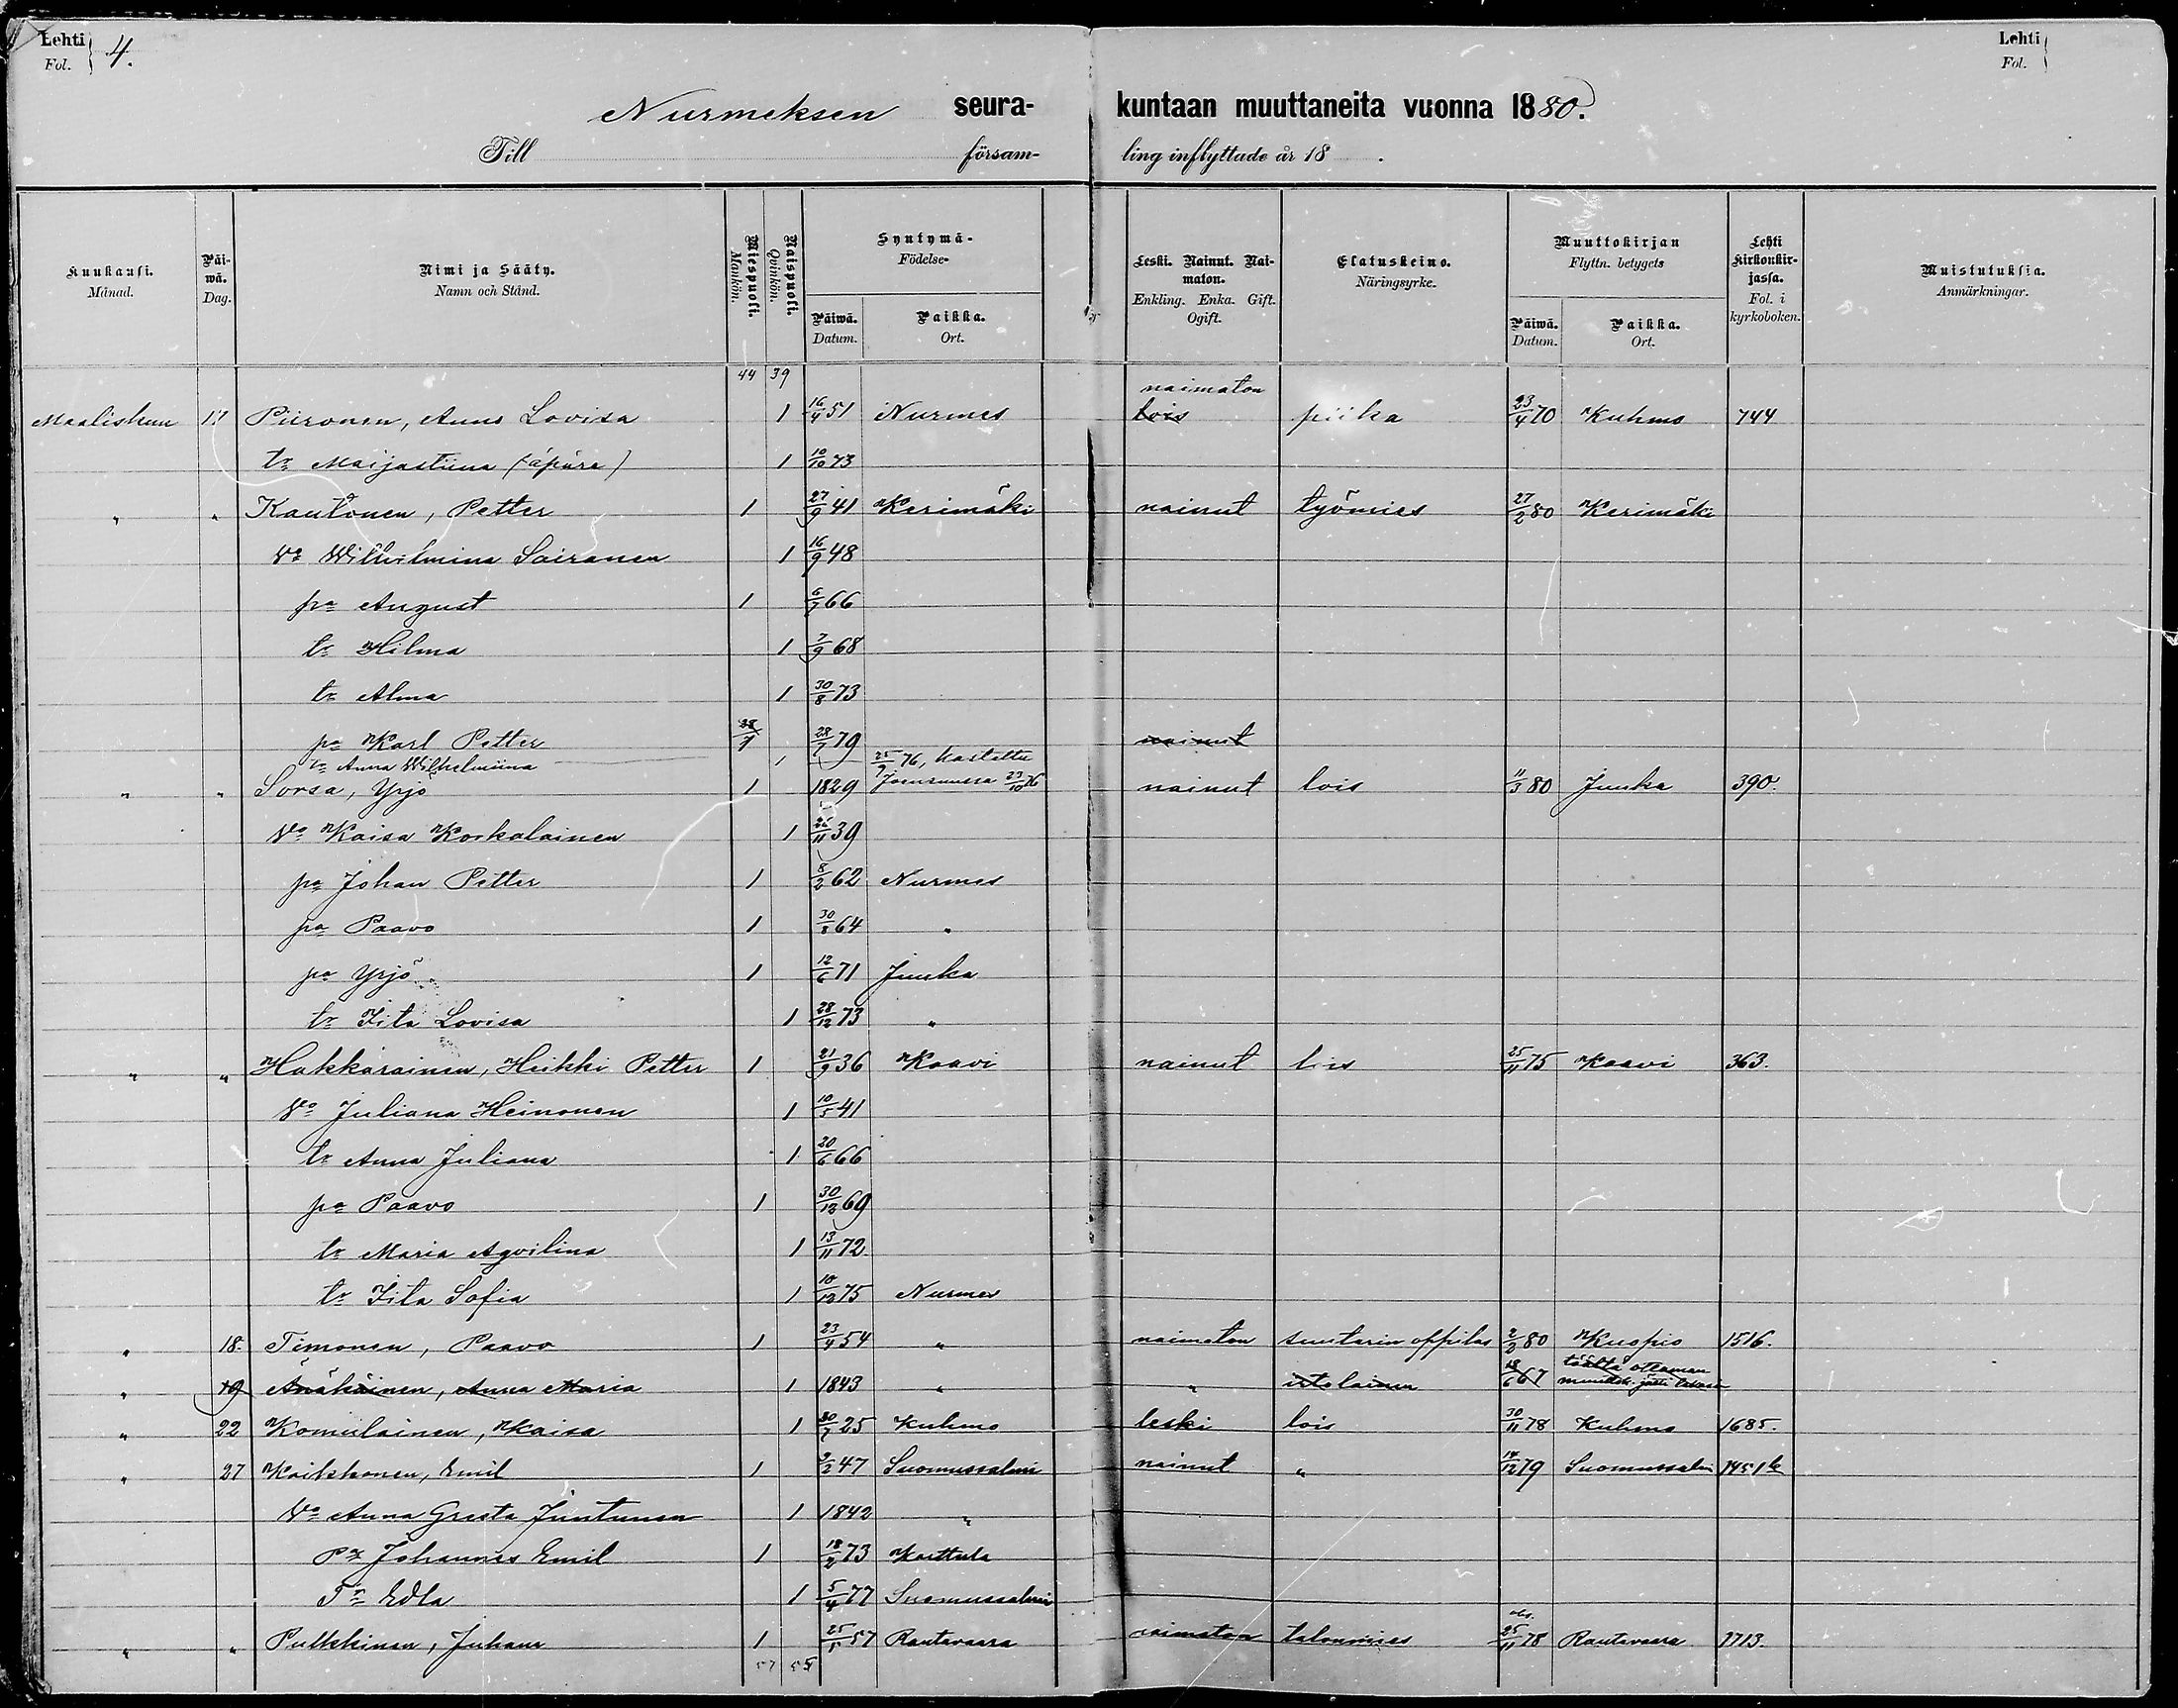 Lehti
Fol. 4.
Lehti
Fol.
Nurmeksen seura- kuntaan muuttaneita vuonna 1880.
Till församling inflyttade år 18 .
Kuukausi. Månad. Päiwä. Dag. Nimi ja Sääty. Namn och Stånd. Miespuoli. Mankön. Naispuoli. Qvinkön. Syntymä- Födelse- Päiwä. Datum. Paikka. Ort. Leski. Nainut. Naimaton. Enkling. Enka. Gift. Ogift. Elatuskeino. Näringsyrke. Muuttokirjan Flyttn. betygets Päiwä. Datum. Paikka. Ort. Lehti kirkonkirjassa. Fol. i kyrkoboken. Muistutuksia. Anmärkningar.
44 39
naimaton
Maaliskuu 17 Piironen, Anna Lovisa 1 16/4 51 Nurmes lois piika 23/4 70 Kuhmo 744
tr Maijastiina (äpärä) 1 10/10 73
" " Kautonen, Petter 1 27/9 41 Kerimäki nainut työmies 27/2 80 Kerimäki
Vo Wilhelmina Sairanen 1 16/9 48
pa August 1 6/7 66
tr Hilma 1 7/9 68
tr Alma 1 30/8 73
pa Karl Petter 1 28/7 79 nainut
tr Anna Wilhelmiina 1 25/9 76, kastettu
Joensuussa 23/10 76
" " Sorsa, Yrjö 1 1829 nainut lois 11/3 80 Juuka 390.
Vo Kaisa Korkalainen 1 26/11 39
pa Johan Petter 1 8/2 62 Nurmes
pa Paavo 1 30/8 64 "
pa Yrjö 1 12/6 71 Juuka
tr Iita Lovisa 1 28/12 73 "
" " Hakkarainen, Heikki Petter 1 21/9 36 Kaavi nainut lois 25/11 75 Kaavi 363.
Vo Juliana Heinonen 1 10/5 41
tr Anna Juliana 1 20/6 66
pa Paavo 1 30/12 69
tr Maria Aqvilina 1 13/11 72
tr Iita Sofia 1 10/12 75 Nurmes
" 18. Timonen, Paavo 1 23/4 54 " naimaton suutarin oppilas 2/2 80 Kuopio 1516.
" 19 Anna Maria 1 1843 " " itselainen 18/6 67 täältä
" 22 Komulainen, Kaisa 1 30/7 25 Kuhmo leski lois 30/11 78 Kuhmo 1685.
" 27 Koikkonen, Emil 1 2/2 47 Suomussalmi nainut " 14/12 79 Suomussalmi 1451b
Vo Anna Greeta Juntunen 1 1842 "
Pa Johannes Emil 1 18/2 73 Karttula
Tr Edla 1 5/4 77 Suomussalmi
" " Pulkkinen, Juhana 1 25/5 57 Rautavaara naimaton talonmies 25/11 78 Rautavaara 1713.
57 55